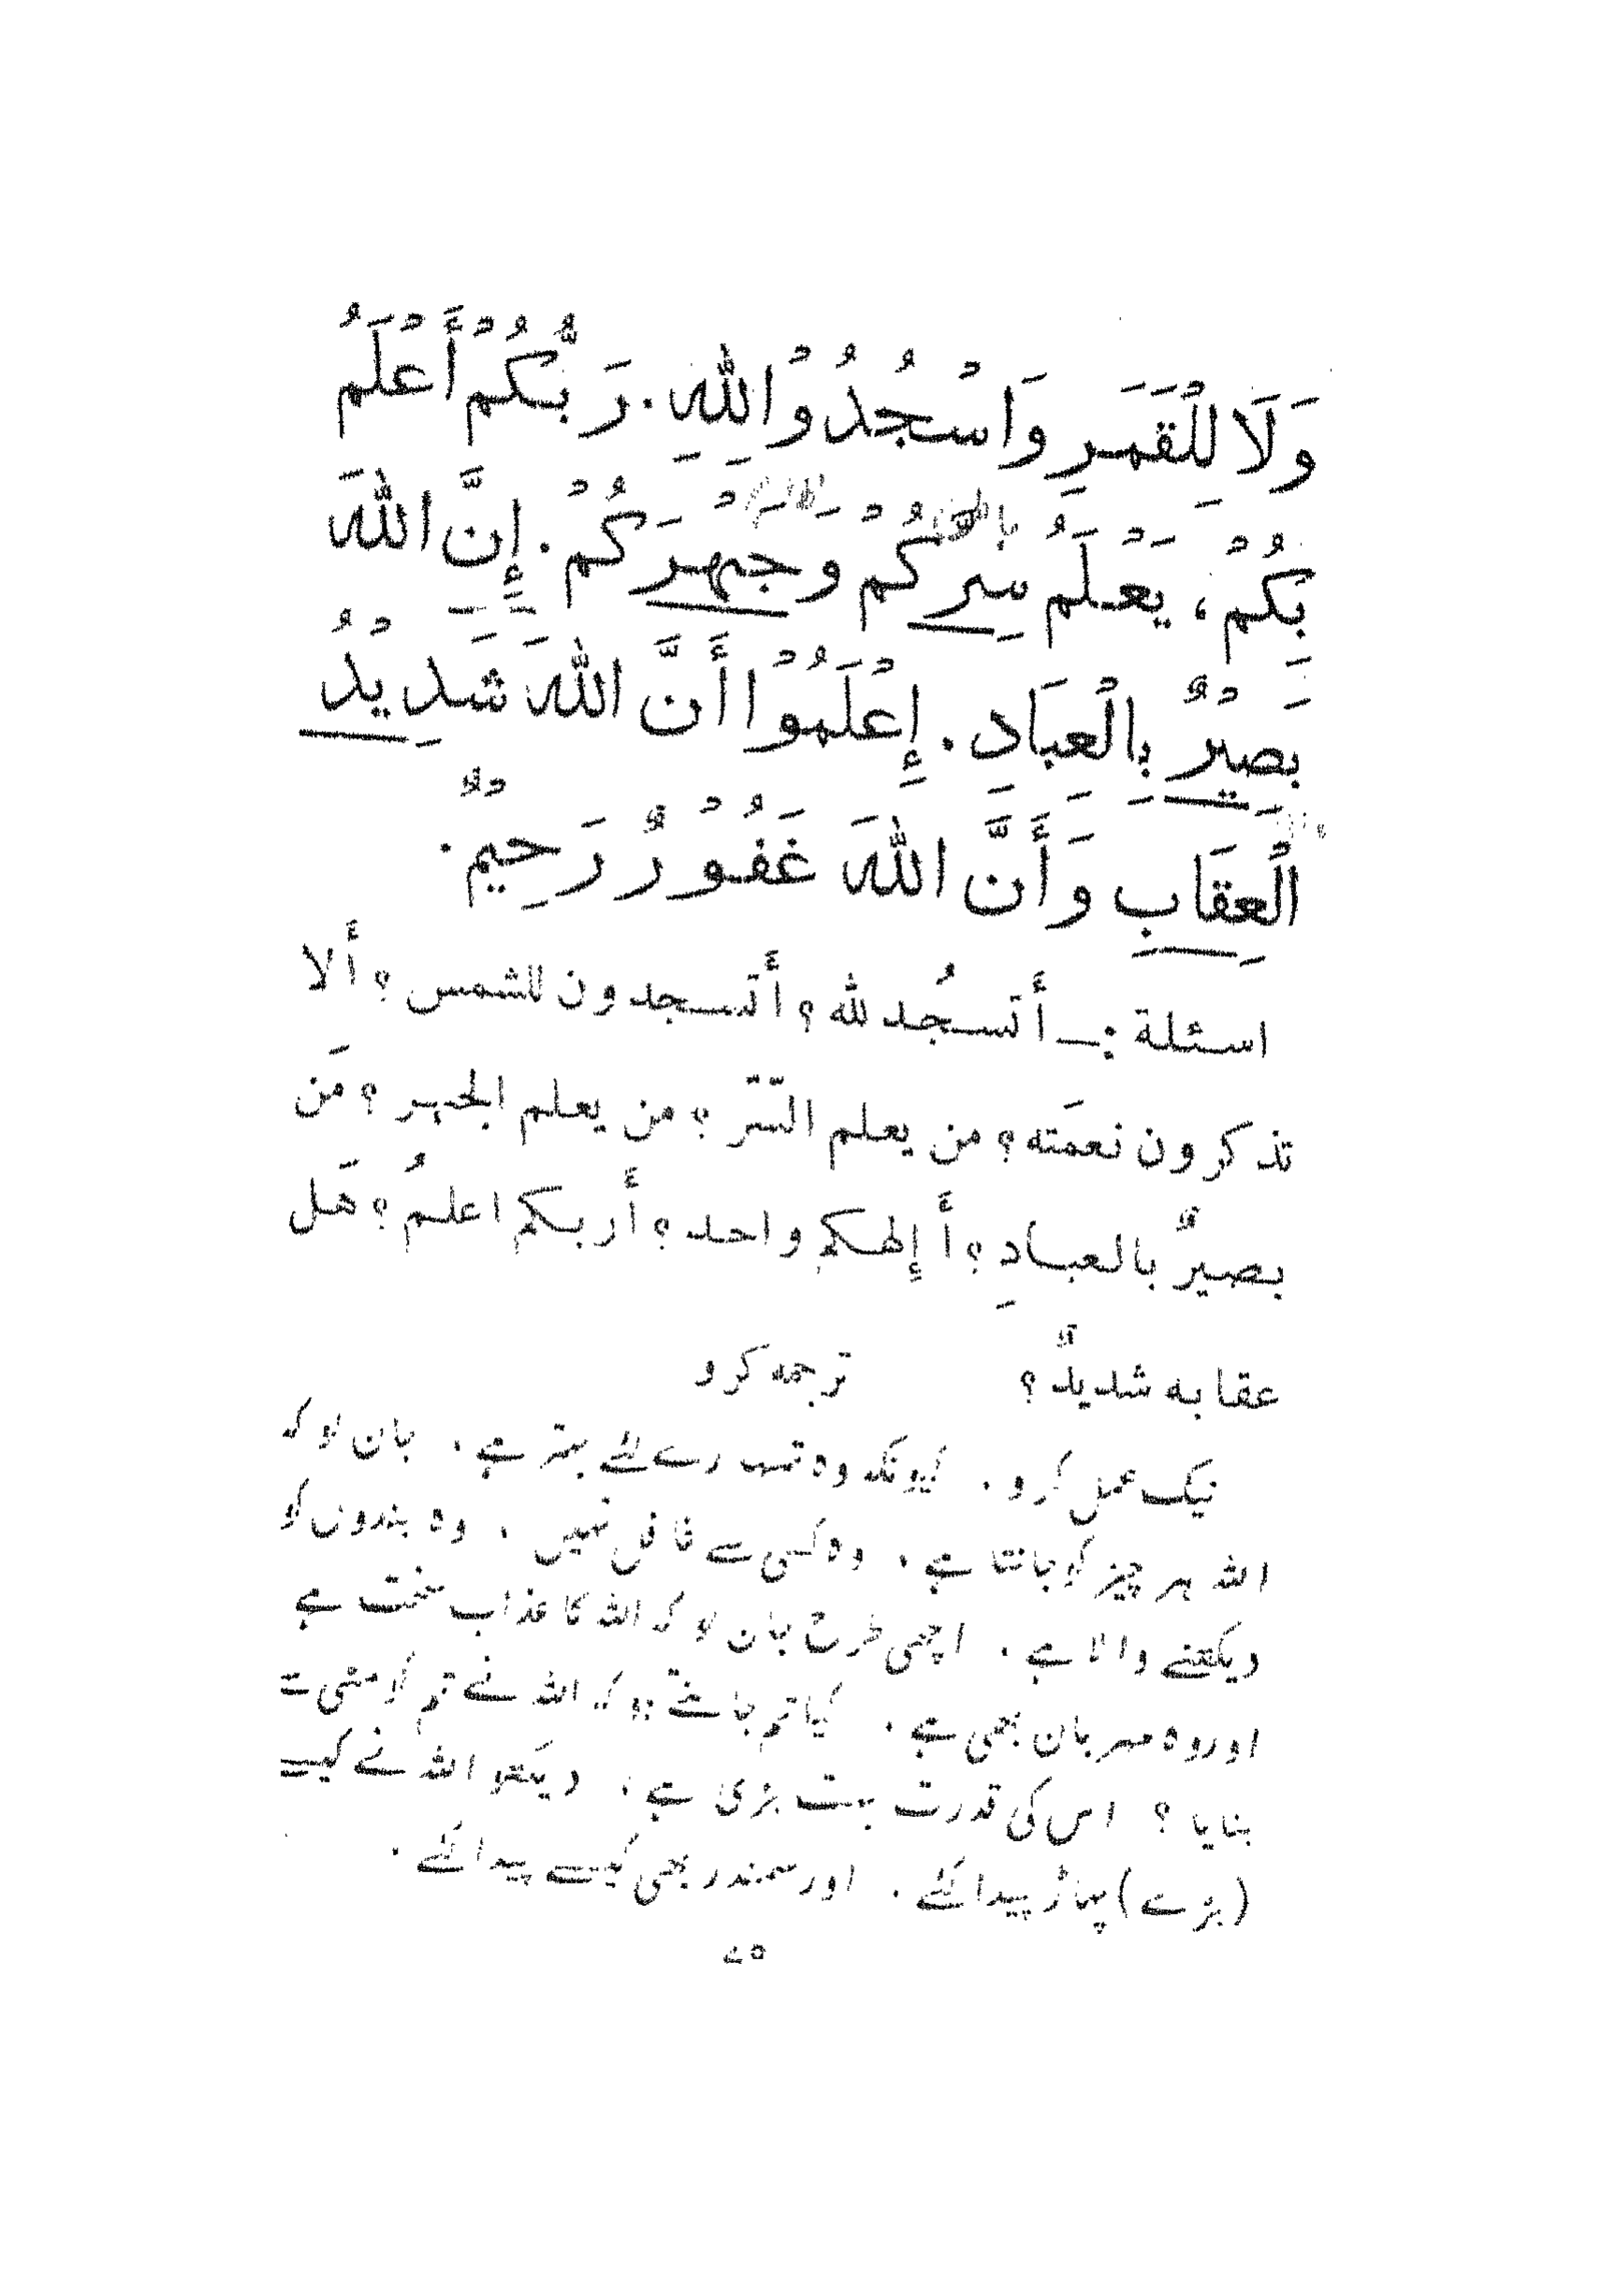 وَلَا لِلْقَمَرِ وَاسْجُدُوْا لِلّٰهِ. رَبُّكُمْ أَعْلَمُ
بِكُمْ، يَعْلَمُ سِرَكُمْ وَجَهْرَكُمْ. إِنَّ اللّٰهَ
بَصِيْرٌ بِالْعِبَادِ. إِعْلَمُوْا أَنَّ اللّٰهَ شَدِيْدُ
الْعِقَابِ وَأَنَّ اللّٰهَ غَفُوْرٌ رَحِيْمٌ.
اسئلة :ـ أتسجُد لله ؟ أتسجدون للشمس ؟ ألا
تذكرون نعمَته ؟ من يعلم السّر ؟ من يعلم الجهر ؟ مَن
بصيرٌ بالعبادِ ؟ أَ إِلهكم واحد ؟ أربكم اعلمُ ؟ هَل
عقابه شديدٌ ؟ ترجمه كرو
نیک عمل کرو . کیونکہ وہ تمہارے لئے بہتر ہے . جان لو کہ
اللہ ہر چیز کو جانتا ہے . وہ کسی سے غافل نہیں . وہ بندوں کو
دیکھنے والا ہے . اچھی طرح جان لو کہ اللہ کا عذاب سخت ہے
اور وہ مہربان بھی ہے . کیا تم جانتے ہو کہ اللہ نے تم کو مٹی سے
بنایا ؟ اس کی قدرت بہت بڑی ہے . دیکھو اللہ نے کیسے
(بڑے) پہاڑ پیدا کئے . اور سمندر بھی کیسے پیدا کئے .
۷۵